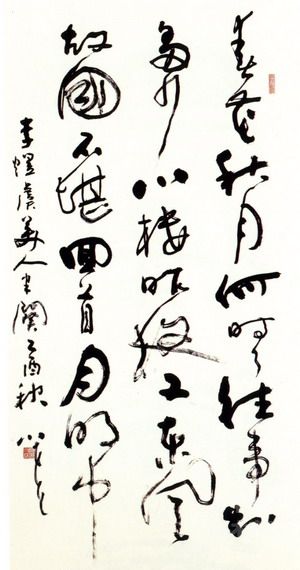 春花秋月何时了往事知
多少小楼昨夜又东风
故国不堪回首月明中
李煜虞美人半阕乙酉秋